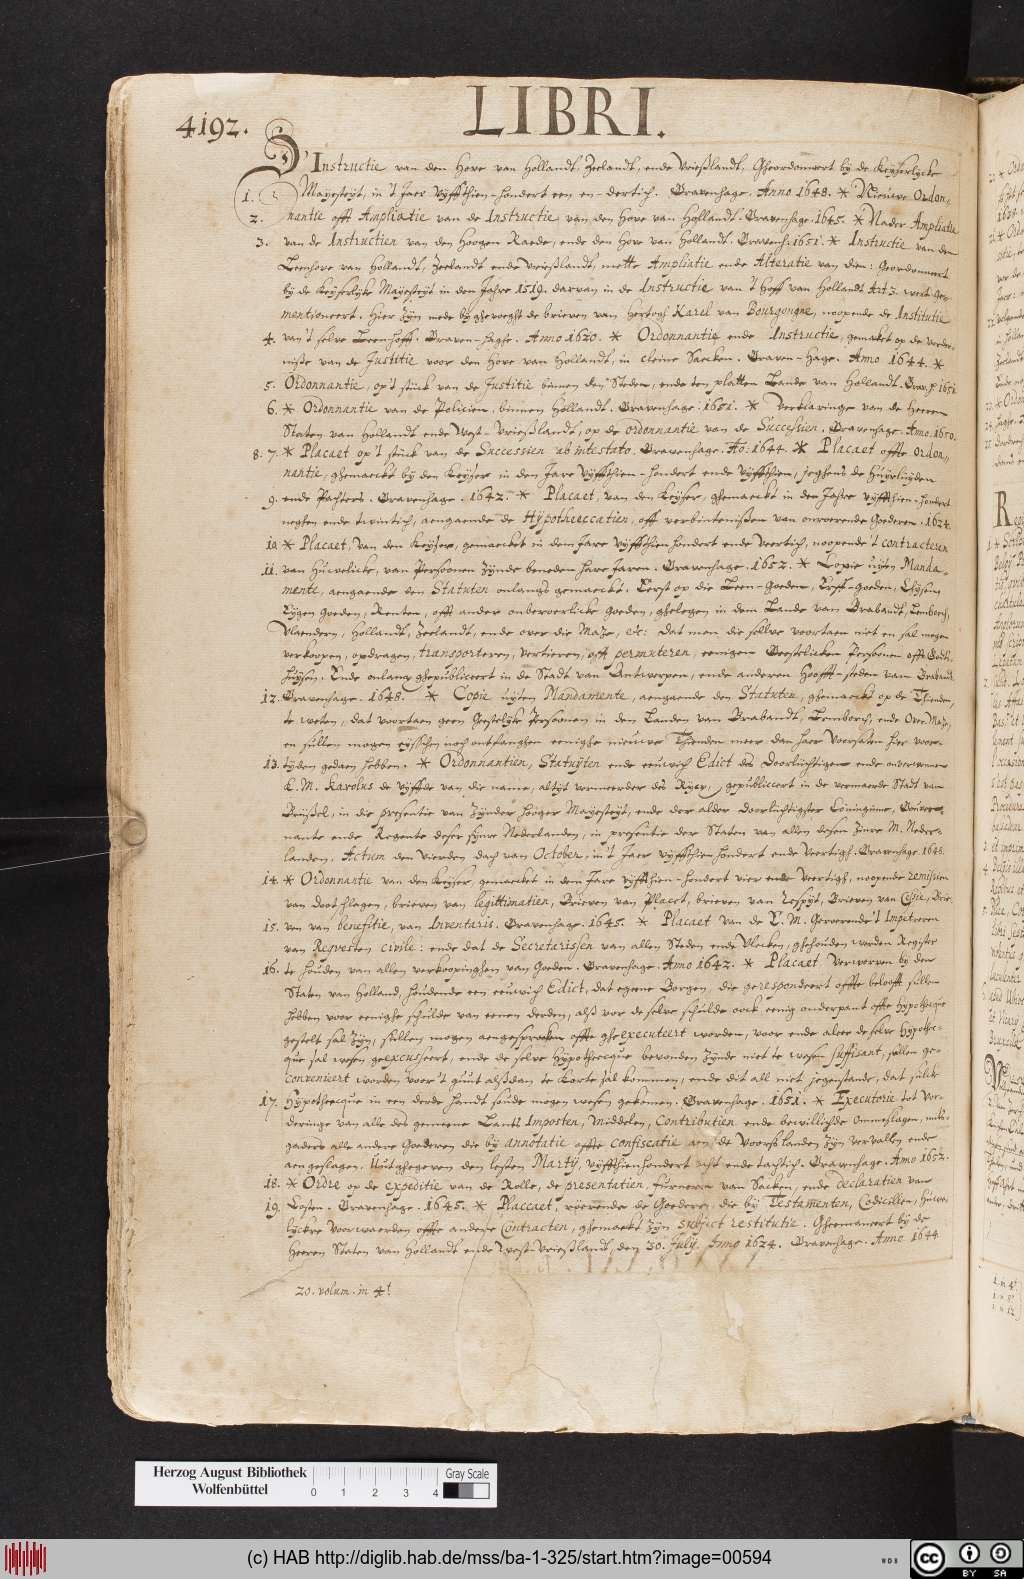 LIBRI.
4192.
D'Instructie van den Hove van Hollandt, Zeelandt, ende Vrießlandt, Gheordonneert by de Keyserlycke
1. Mayesteyt, in 't Jaer vyffthien-hondert een en-dertich. Gravenhage. Anno 1648. * Nieuwe Ordon-
2. nantie offt Ampliatie van de Instructie van den Hove van Hollandt. Gravenhage. 1645. * Nader Ampliatie
3. van de Instructien van den Hoogen Raede, ende den Hove van Hollandt. Gravenh. 1651. * Instructie van den
Leenhove van Hollandt, Zeelandt ende Vrießlandt, mette Ampliatie ende Alteratie van dien: Geordonneert
by de Keyserlyke Mayesteyt in den Jahre 1519. darvan in de Instructie van 't Hoff van Hollandt Art. 3. wert ge-
mentioneert. Hier zyn mede byghevoeght de brieven van Hertogh Karel van Bourgongne, noopende de Institutie
4. van 't selve Leenhoff. Graven-haghe. Anno 1620. * Ordonnantie ende Instructie, gemaket op de vorder-
nisse van de Justitie voor den Hove van Hollandt, in cleine Saecken. Graven-Hage. Anno 1644. *
5. Ordonnantie, op 't stück van de Justitie binnen den Steden, ende ten platten Lande van Hollandt. Grav. 1651
6. * Ordonnantie van de Policien, binnen Hollandt. Gravenhage. 1651. * Verklaringe van de Heeren
Staten van Hollandt ende West-Vrießlandt, op de ordonnantie van de Successien. Gravenhage. Anno. 1650.
8. 7. * Placaet op 't stück van de Successien ab intestato. Gravenhage. Ao. 1644. * Placaet offte Ordon-
nantie, ghemaeckt by den Keyser in den Jare vyffthien-hondert ende vyffthien, jeghens de Huyrluyden
9. ende Pachters. Gravenhage. 1642. * Placaet, van den Keyser, ghemaeckt in den Jahre vyffthien-hondert
negten ende twintich, aengaende de Hypotheeccatien, off verbintenissen van onroerende Goederen. 1624.
10. * Placaet, van den Keyser, gemaecket in dem Jare vyffthien hondert ende veertich, noopende 't contracteren
11. van Huwelicke, van Persoonen zynde beneden hare jaren. Gravenhage. 1652. * Copie uyten Manda-
mente, aengaende den Statuten onlangs gemaeckt. Eerst op die Leen-goeden, Erff-goeden, Chysen,
Eygen goeden, Renten, offt andere onberoerlicke goeden, ghelegen in dem Lande van Brabandt, Lemborch,
Vlaendern, Hollandt, Zeelandt, ende over die Maze, etc: dat men die selve voortaen niet en sal mogen
verkoopen, opdragen, transporteren, vertieren, offt permuteren, eenigen Geestelicken Persoonen offte Godts-
huysen. Ende onlang ghepubliceert in de Stadt van Antwerpen, ende anderen Hoofft-steden van Brabandt.
12. Gravenhage. 1648. * Copie uyten Mandamente, aengaende den Statuten, ghemaeckt op de Thienden,
te weten, dat voortaen geen Geestelyke Persoonen in den Landen van Brabandt, Lemborch, ende Over-Maze,
en sullen mogen eysschen noch ontfanghen eenighe nieuwe Thienden meer dan haer Voorsaten hier voor-
13. tyden gedaen hebben. * Ordonnantien, Statuyten ende eeuwich Edict des Doorluchtigen ende onverwonnen
K. M. Karolus de vyffde van die name, altyt vermeerder des Rycx, gepubliceert in de vermaerde Stadt van
Brüssel, in die presentie van zynder hooger Mayesteyt, ende der alder doorluchtigster Coninginne, Gouver-
nante ende Regente deser synre Nederlanden, in presentie der Staten van allen desen zinre M. Neder-
landen. Actum den vierden dach van October, in 't Jaer vyffthien hondert ende veertigh. Gravenhage. 1648.
14. * Ordonnantie van den Keyser gemaecket in dem Jare vyffthien-hondert vier ende veertigh, noopende remissien
van dootshlagen, brieven van legittimatien, Brieven van Placet, brieven van Respyt, Brieven van Cessie, Brie-
15. ven van benefitie, van Inventaris. Gravenhage. 1645. * Placaet van de K. M. Geroerende 't Impetreren
van Requesten civile: ende dat de Secretarissen van allen Steden ende Vlecken, ghehouden werden Register
16. te houden van allen verkoopinghen van Goeden. Gravenhage. Anno 1642. * Placaet verworven by den
Staten van Holland, houdende een eeuwich Edict, dat egeene Borgen, die gerespondeert offte belooft sullen
hebben voor eenighe schülde van eenen derden, alß vor de selve schülde oock eenig onderpant offte Hypotheque
gestelt sal zyn, süllen mogen aengesproken offte gheexecuteert worden, voor ende aleer de selve Hypothe-
que sal wesen geexcusseert, ende de selve Hypotheecque bevonden zynde niet te wesen suffisant, süllen ge-
convenieert worden voor 't guut alßdan te korte sal kommen, ende dit all niet jegenstaende, dat sulke
17. Hypotheecque in een derde handt soude mogen wesen gekomen. Gravenhage. 1651. * Executorie tot Vor-
deringe van alle des gemeene Lants Imposten, Middelen, Contributien ende bewillichde Ommeslagen, mits-
gaders alle andere Goederen die by annotatie offte confiscatie aen de Voorß landen zyn vervallen ende
aengeslagen. Uutghegeven den lesten Martij, vyffthienhondert acht ende tachtich. Gravenhage. Anno 1652.
18. * Ordre op de expeditie van de Rolle, de presentatien, fürneren van Sacken, ende declaratien van
19. Costen. Gravenhage. 1645. * Placcaet, roerende de Goederen, die by Testamenten, Codicillen, Huwe-
lyckse Voorwaerden offte andere Contracten, ghemaekt zyn subject restitutie. Gheemaneert by de
Heeren Staten van Hollandt ende West-Vrießlandt, den 30. July. Anno 1624. Gravenhage. Anno 1644
20. volum. in 4t.
Herzog August Bibliothek
Wolfenbüttel
0 1 2 3 4
Gray Scale
(c) HAB http://diglib.hab.de/mss/ba-1-325/start.htm?image=00594
WDB
cc BY SA